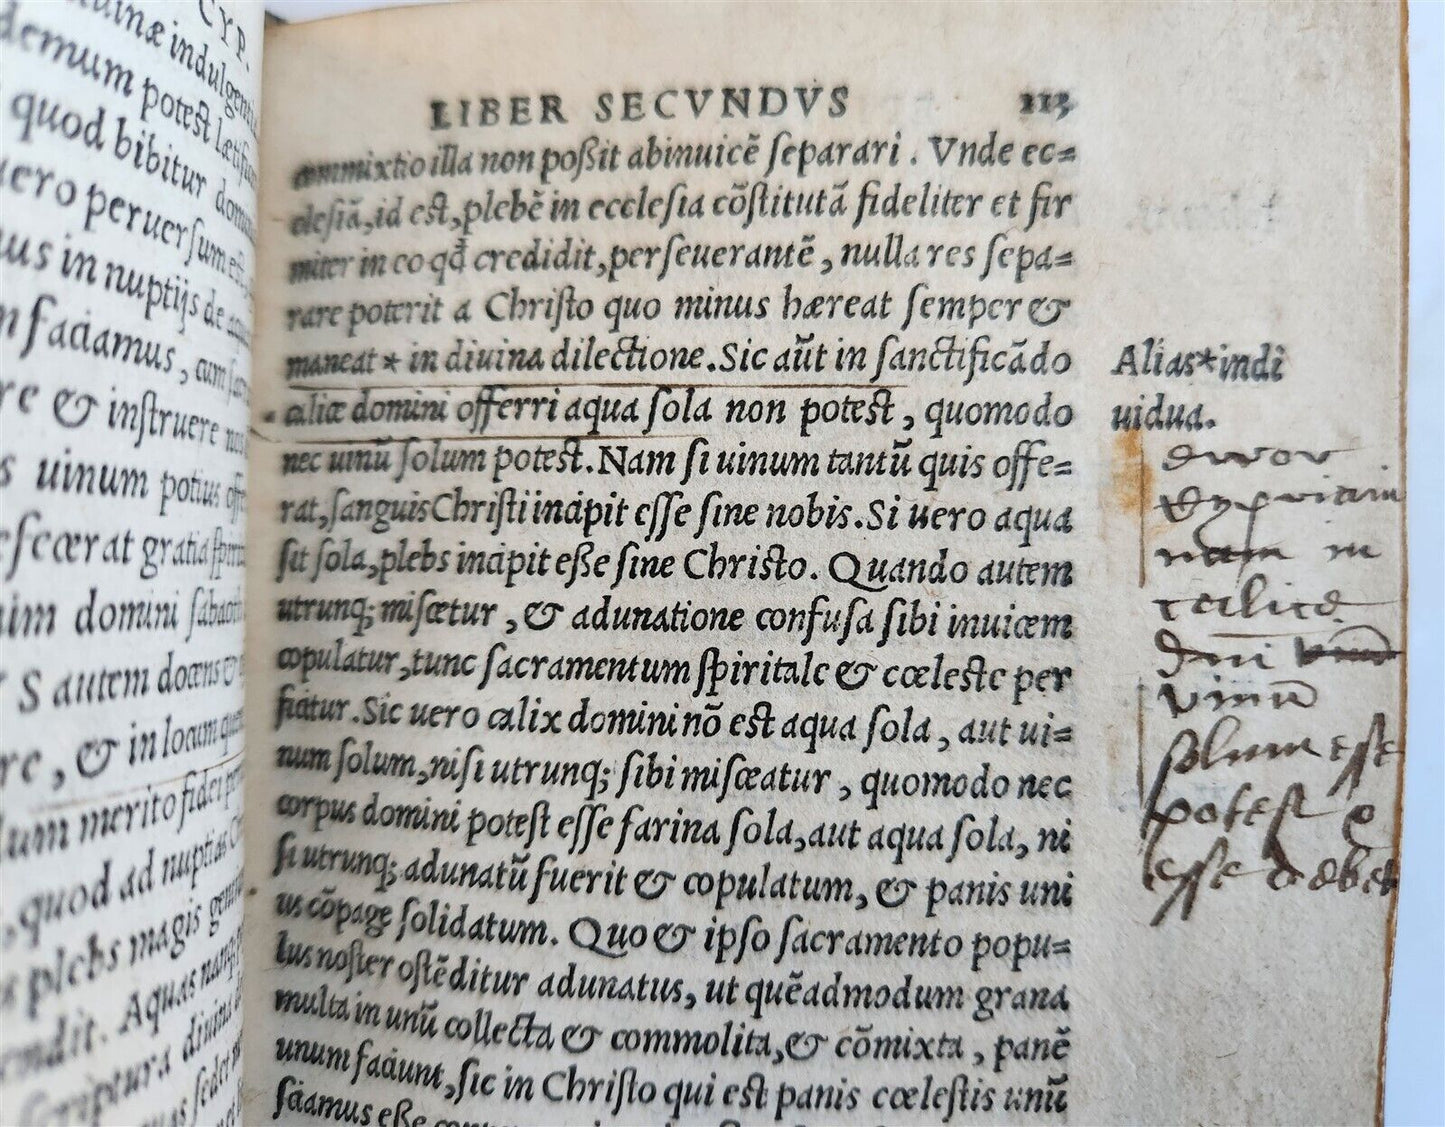 CYP.
uinæ indulgenti
demum potest lætifi
quod bibitur domi
uero peruersum est
us in nuptijs de a
faciamus, cum
re & instruere
s uinum potius offe
scœrat gratia spiri
im domini sabaoth
S autem docens &
re, & in locum
lum merito fidei
quod ad nuptias
plebs magis
endit. Aquas namq
scriptura diuina
sedet
LIBER SECVNDVS 113
commixtio illa non poßit abinuicẽ separari. Vnde ec=
clesiã, id est, plebẽ in ecclesia cõstitutã fideliter et fir
miter in eo qđ credidit, perseuerantẽ, nulla res sepa=
rare poterit a Christo quo minus hæreat semper &
maneat * in diuina dilectione. Sic aũt in sanctificãdo
calice domini offerri aqua sola non potest, quomodo
nec uinũ solum potest. Nam si uinum tantũ quis offe=
rat, sanguis Christi incipit esse sine nobis. Si uero aqua
sit sola, plebs incipit eße sine Christo. Quando autem
utrunq; miscetur, & adunatione confusa sibi inuicem
copulatur, tunc sacramentum spiritale & cœleste per
ficitur. Sic uero calix domini nõ est aqua sola, aut ui=
num solum, nisi utrunq; sibi misceatur, quomodo nec
corpus domini potest esse farina sola, aut aqua sola, ni
si utrunq; adunatũ fuerit & copulatum, & panis uni
us cõpage solidatum. Quo & ipso sacramento popu=
lus noster ostẽditur adunatus, ut quẽadmodum grana
multa in unũ collecta & commolita, & cõmixta, panẽ
unum faciunt, sic in Christo qui est panis cœlestis unũ
sciamus eße
Alias * indi
uidua.
error
cypriani
nam in
calice
dni vinu
vinũ
solum esse
potest e
esse debet